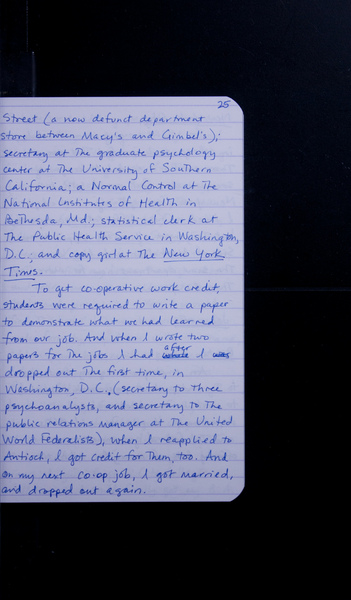 25
Street (a now defunct department
store between Macy's and Gimbel's);
secretary at the graduate psychology
center at the University of Southern
California; a Normal Control at the
National Institutes of Health in
Bethesda, Md.; statistical clerk at
the Public Health Service in Washington,
D.C.; and copy girl at the New York
Times.
To get co-operative work credit,
students were required to write a paper
to demonstrate what we had learned
from our job. And when I wrote two
papers for the jobs I had after I
dropped out the first time, in
Washington, D.C. (secretary to three
psychoanalysts, and secretary to the
public relations manager at the United
World Federalists), when I reapplied to
Antioch, I got credit for them, too. And
on my next co-op job, I got married,
and dropped out again.